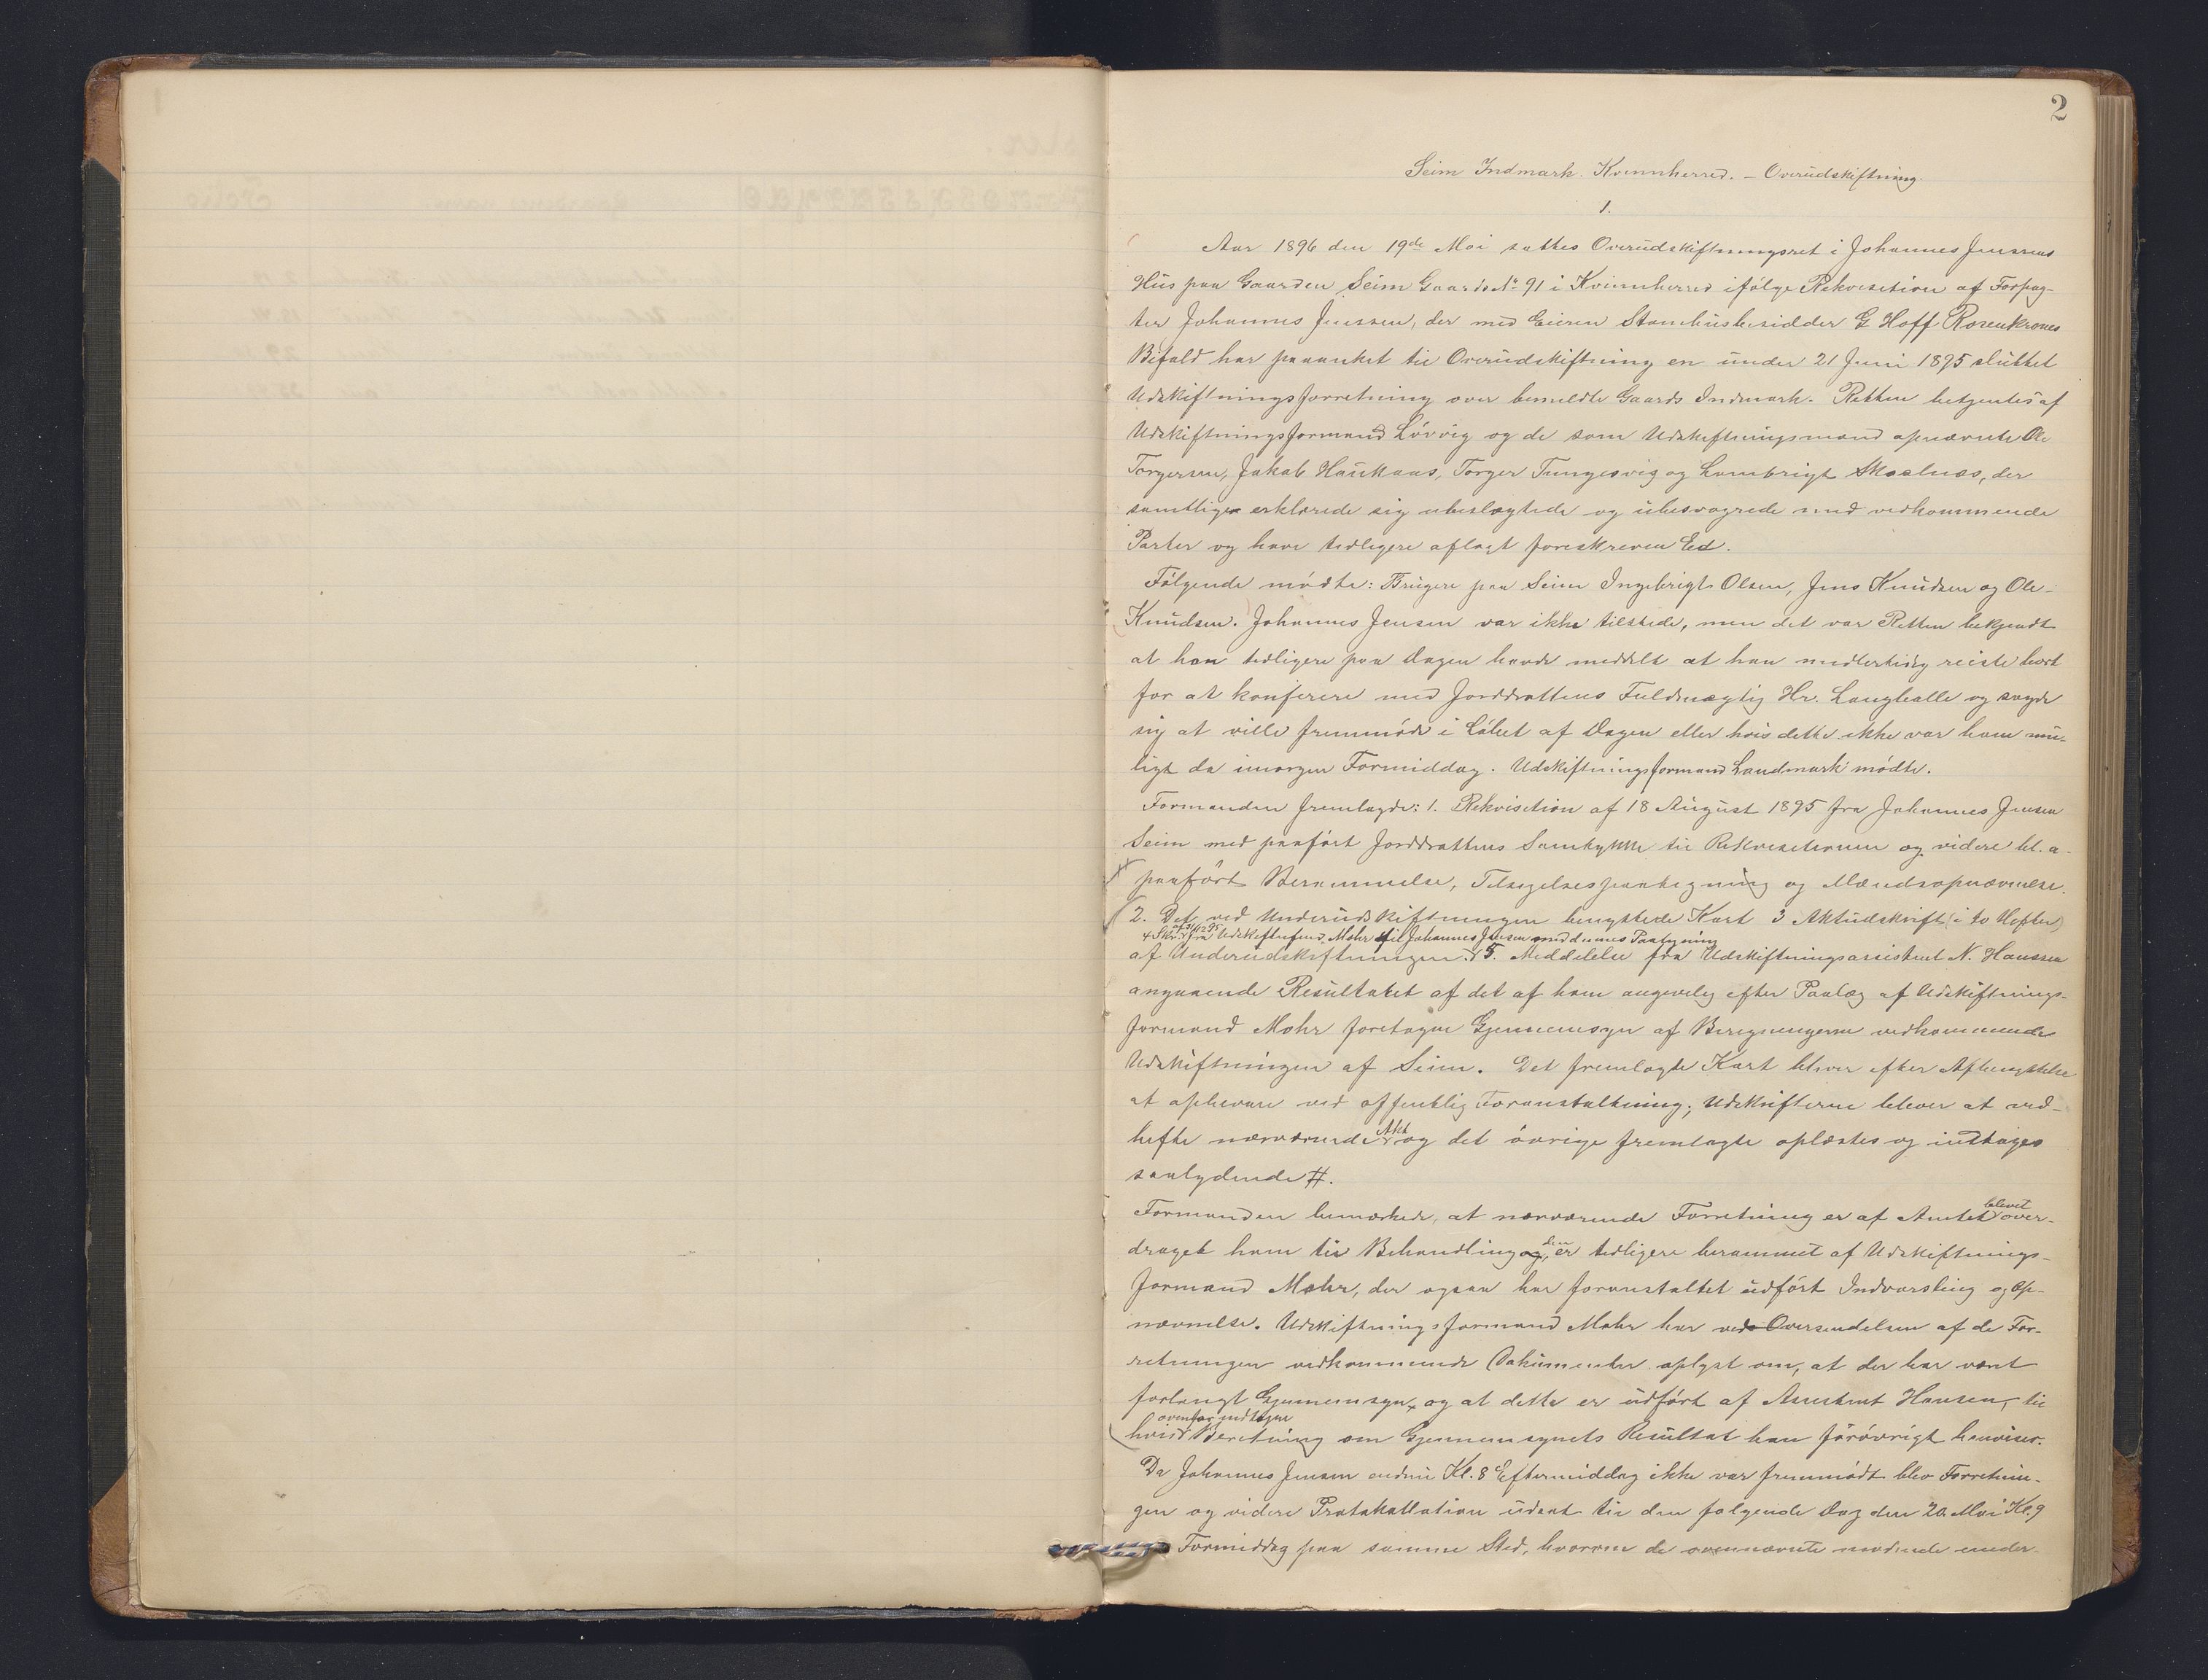 2
Seim Indmark. Kvinnherred. – Overudskiftning.
1.
Aar 1896 den 19de Mai sattes Overudskiftningsret i Johannes Jenssens
Hus paa Gaarden Seim Gaards No 91 i Kvinnherred ifølge Rekvisition af Forpag-
ter Johannes Jenssen, der med Eieren Stamhusbesidder G Hoff Rosenkrones
Bifald har paaanket til Overudskiftning en under 21 Juni 1895 sluttet
Udskiftningsforretning over bemeldte Gaards Indmark. Retten betjentes af
Udskiftningsformand Løvvig og de som Udskiftningsmænd opnævnte Ole
Torgersen, Jakob Haukaas, Torger Tungesvig og Lambrigt Skaalnæs, der
samtlige erklærede sig ubeslægtede og ubesvogrede med vedkommende
Parter og have tidligere aflagt foreskreven Ed.
Følgende mødte: Brugere paa Seim Ingebrigt Olsen, Jens Knudsen og Ole
Knudsen. Johannes Jensen var ikke tilstede, men det var Retten bekjendt
at han tidligere paa Dagen havde meddelt at han midlertidig reiste bort
for at konferere med Jorddrottens Fuldmægtig Hr. Langballe og sagde
sig at ville fremmøde i Løbet af Dagen eller hvis dette ikke var ham mu-
ligt da imorgen Formiddag. Udskiftningsformand Landmark mødte.
Formanden fremlagde: 1. Rekvisition af 18 August 1895 fra Johannes Jensen
Seim med paaført Jorddrottens Samtykke til Rekvisitionen og videre bl. a.
paaført Berammelse, Tilsigelsespaategning og Mændsopnævnelse.
2. Det ved Underudskiftningen benyttede Kart 3 Aktudskrift (i to Hefter)
4 Skr. af 31/12 95 fra Udskiftnfmd. Mohr til Johannes Jensen med dennes Paategning
af Underudskiftningen. 5. Meddelelse fra Udskiftningsassistent N. Hanssen
angaaende Resultatet af det af ham angivelig efter Paalæg af Udskiftnings-
formand Mohr foretagne Gjennemsyn af Beregningerne vedkommende
Udskiftningen af Seim. Det fremlagte Kart bliver efter Afbenyttelse
at opbevare ved offentlig Foranstaltning; Udskrifterne bliver at ved-
hefte nærværende Akt og det øvrige fremlagte oplæstes og indtages
saalydende #.
Formanden bemærkede, at nærværende Forretning er af Amtet blevet over-
draget ham til Behandling, den er tidligere berammet af Udskiftnings-
formand Mohr, der ogsaa har foranstaltet udført Indvarsling og Op-
nævnelse. Udskiftningsformand Mohr har ved Oversendelsen af de For-
retningen vedkommende Dokumenter oplyst om, at der har været
forlangt Gjennemsyn, og at dette er udført af Assistent Hansen, til
hvis ovenfor indtagne Beretning om Gjennemsynets Resultat han forøvrigt henviser.
Da Johannes Jensen endnu Kl. 8 Eftermiddag ikke var fremmødt blev Forretnin-
gen og videre Protokollation udsat til den følgende Dag den 20 Mai Kl. 9
Formiddag paa samme Sted, hvorom de ovennævnte mødende under-